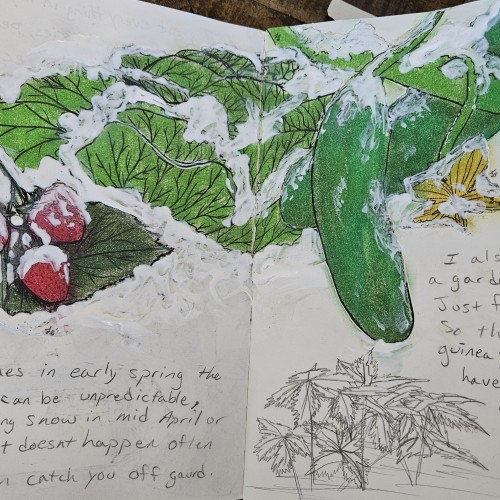 es in early spring the
can be unpredictable,
ng snow in mid April or
t doesnt happen often
n catch you off gaurd.
I als
a garde
Just f
So th
guinea
have